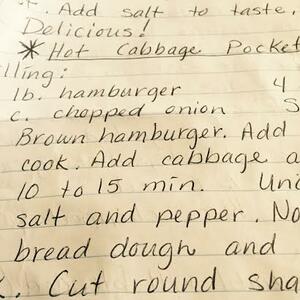 . Add salt to taste.
Delicious!
* Hot Cabbage Pocket
lling:
lb. hamburger 4
c. chopped onion S
Brown hamburger. Add
cook. Add cabbage a
10 to 15 min. Un
salt and pepper. No
bread dough and
. Cut round sha